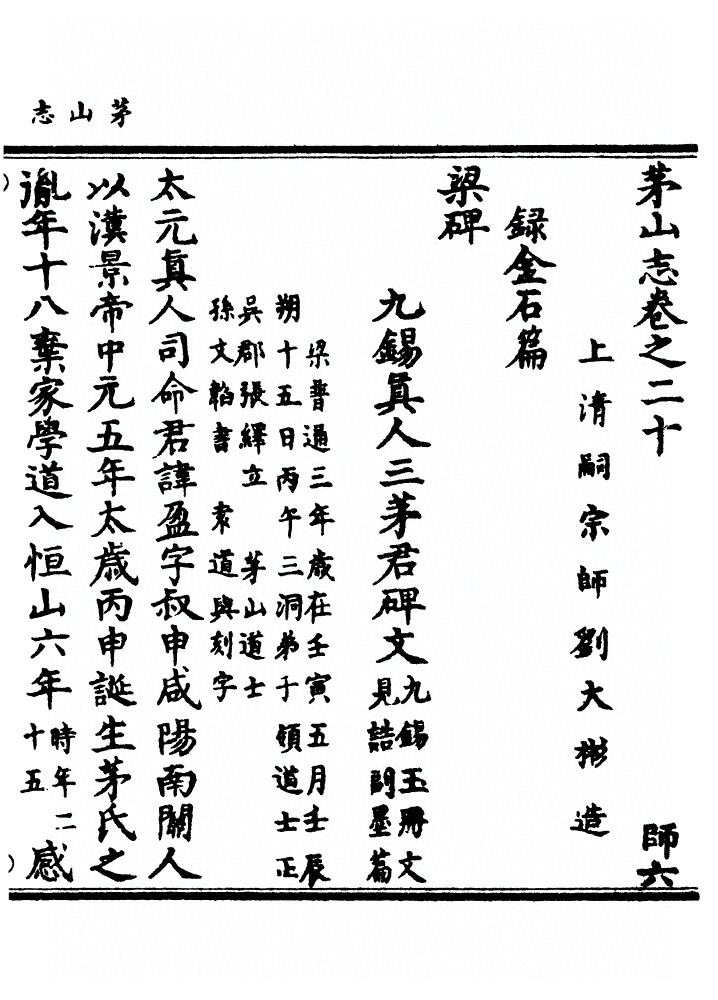 茅山志
茅山志卷之二十 師六
上清嗣宗師劉大彬造
録金石篇
梁碑
九錫眞人三茅君碑文 九錫玉冊文見誥副墨篇
梁普通三年歲在壬寅五月壬辰
朔十五日丙午三洞弟子領道士正
吳郡張繹立 茅山道士
孫文韜書 袁道與刻字
太元眞人司命君諱盈字叔申咸陽南關人
以漢景帝中元五年太歲丙申誕生茅氏之
胤年十八棄家學道入恒山六年 時年二十五 感